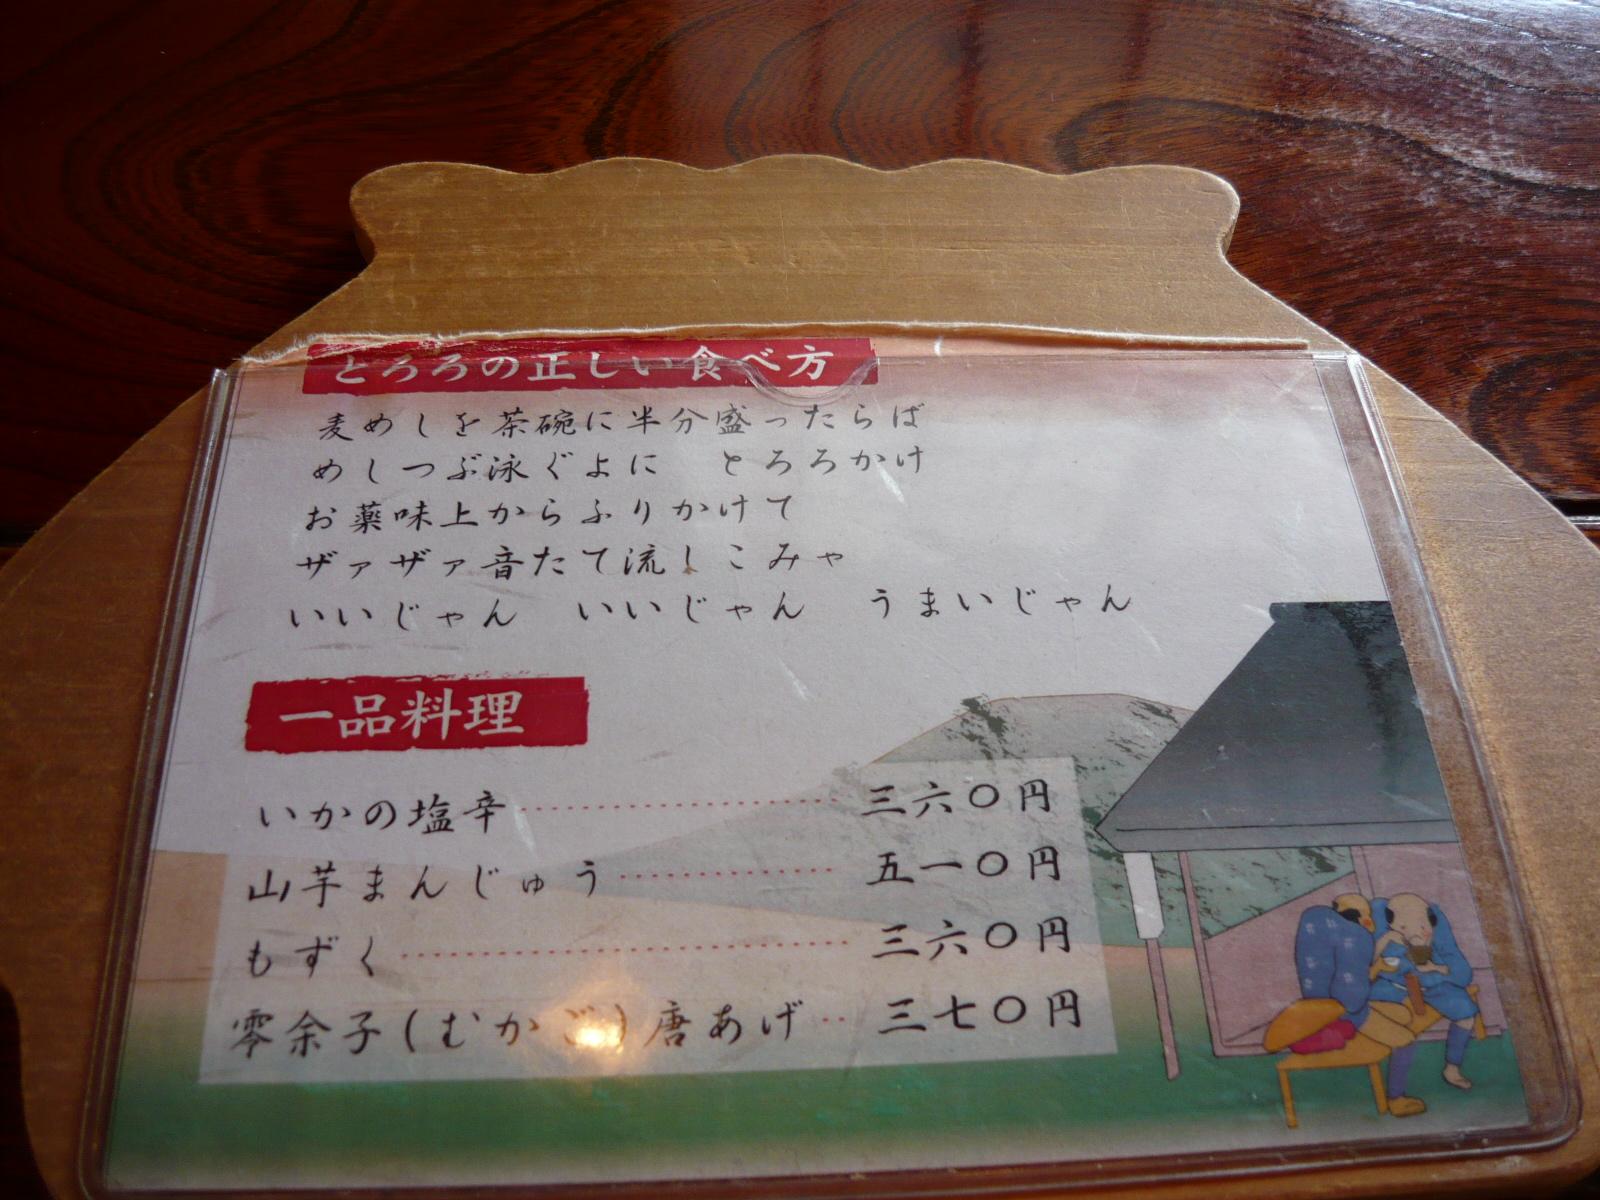 とろろの正しい食べ方
麦めしを茶碗に半分盛ったらば
めしつぶ泳ぐよに　とろろかけ
お薬味上からふりかけて
ザァザァ音たて流しこみゃ
いいじゃん　いいじゃん　うまいじゃん
一品料理
いかの塩辛 三六〇円
山芋まんじゅう 五一〇円
もずく 三六〇円
零余子(むかご)唐あげ 三七〇円